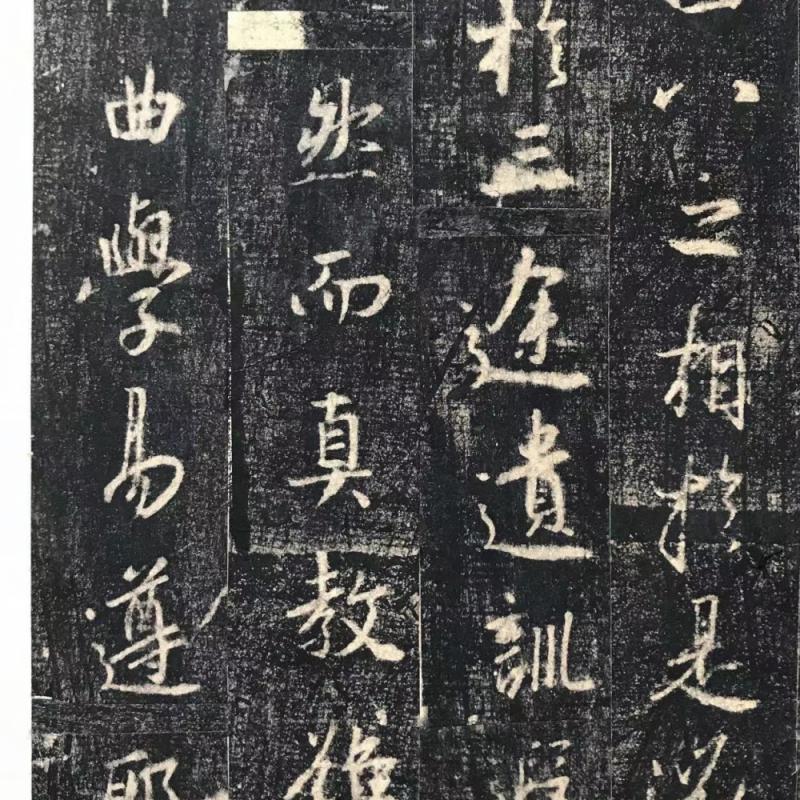 八之相於是
於三途遺訓
然而真教難
曲學易遵耶